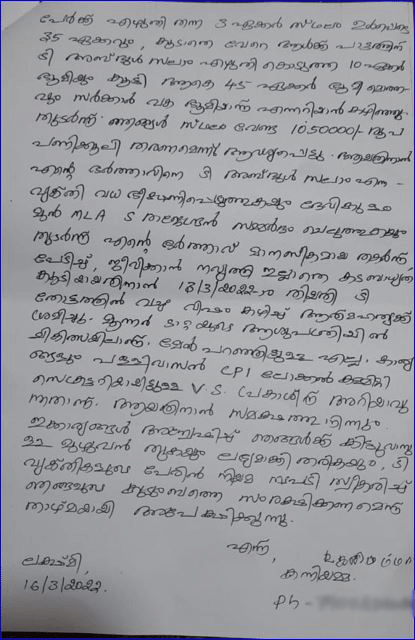 പേർക്ക് എഴുതി തന്ന 3 ഏക്കർ സ്ഥലം ഉൾപ്പെടെ
35 ഏക്കറും, കൂടാതെ വേറെ ആൾക്ക് പാട്ടത്തിന്
ടി അബ്ദുൾ സലാം എഴുതി കൊടുത്ത 10 ഏക്കർ
ഭൂമിയും കൂട്ടി ആകെ 45 ഏക്കർ ഭൂമി മൊത്ത-
വും സർക്കാർ വക ഭൂമിയാണ് എന്നറിയാൻ കഴിഞ്ഞു.
തുടർന്ന് ഞങ്ങൾ സ്ഥലം വേണ്ട 1050000/- രൂപ
പണിക്കൂലി തരണമെന്ന് ആവശ്യപ്പെട്ടു. ആയതിനാൽ
എന്റെ ഭർത്താവിനെ ടി അബ്ദുൾ സലാം എന്ന -
വ്യക്തി വധ ഭീഷണിപ്പെടുത്തുകയും ദേവികുളം
മുൻ MLA S രാജേന്ദ്രൻ സമ്മർദം ചെലുത്തുകയും
തുടർന്ന് എന്റെ ഭർത്താവ് മാനസികമായ തളർന്ന്,
പേടിച്ച്, ജീവിക്കാൻ നിവൃത്തി ഇല്ലാതെ കടബാധ്യത
കൂടിയായതിനാൽ 13/3/2022ാം തിയതി ടി
തോട്ടത്തിൽ വച്ചു വിഷം കഴിച്ച് ആത്മഹത്യക്ക്
ശ്രമിച്ചു. മൂന്നാർ ടാറ്റയുടെ ആശുപത്രിയിൽ
ചികിത്സയിലാണ്. മേൽ പറഞ്ഞിട്ടുള്ള എല്ലാ കാര്യ
ങ്ങളും പള്ളിവാസൽ CPI ലോക്കൽ കമ്മിറ്റി
സെക്രട്ടറിയായിട്ടുള്ള V.S. പ്രകാശിന് അറിയാവു
ന്നതാണ്. ആയതിനാൽ സമക്ഷത്തു നിന്നും
ഇക്കാര്യങ്ങൾ അന്വേഷിച്ച് ഞങ്ങൾക്ക് കിട്ടുവാനു
ള്ള മുഴുവൻ തുകയും ലഭ്യമാക്കി തരികയും, ടി
വ്യക്തികളുടെ പേരിൽ നിയമ നടപടി സ്വീകരിച്ച്
ഞങ്ങളുടെ കുടുംബത്തെ സംരക്ഷിക്കണമെന്ന്
താഴ്മയായി അപേക്ഷിക്കുന്നു.
എന്ന്,
ലക്ഷ്മി,
16/3/2022.
കന്നിയമ്മ.
Ph -